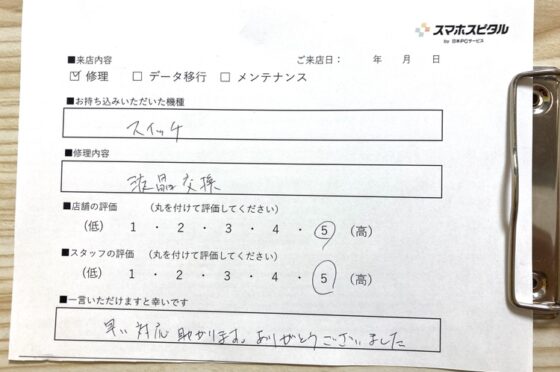 スマホスピタル
by 日本PCサービス
■来店内容
ご来店日： 年 月 日
☑ 修理 □ データ移行 □ メンテナンス
■お持ち込みいただいた機種
スイッチ
■修理内容
液晶交換
■店舗の評価 （丸を付けて評価してください）
（低） 1 ・ 2 ・ 3 ・ 4 ・ 5 （高）
■スタッフの評価 （丸を付けて評価してください）
（低） 1 ・ 2 ・ 3 ・ 4 ・ 5 （高）
■一言いただけますと幸いです
早い対応助かります。ありがとうございました